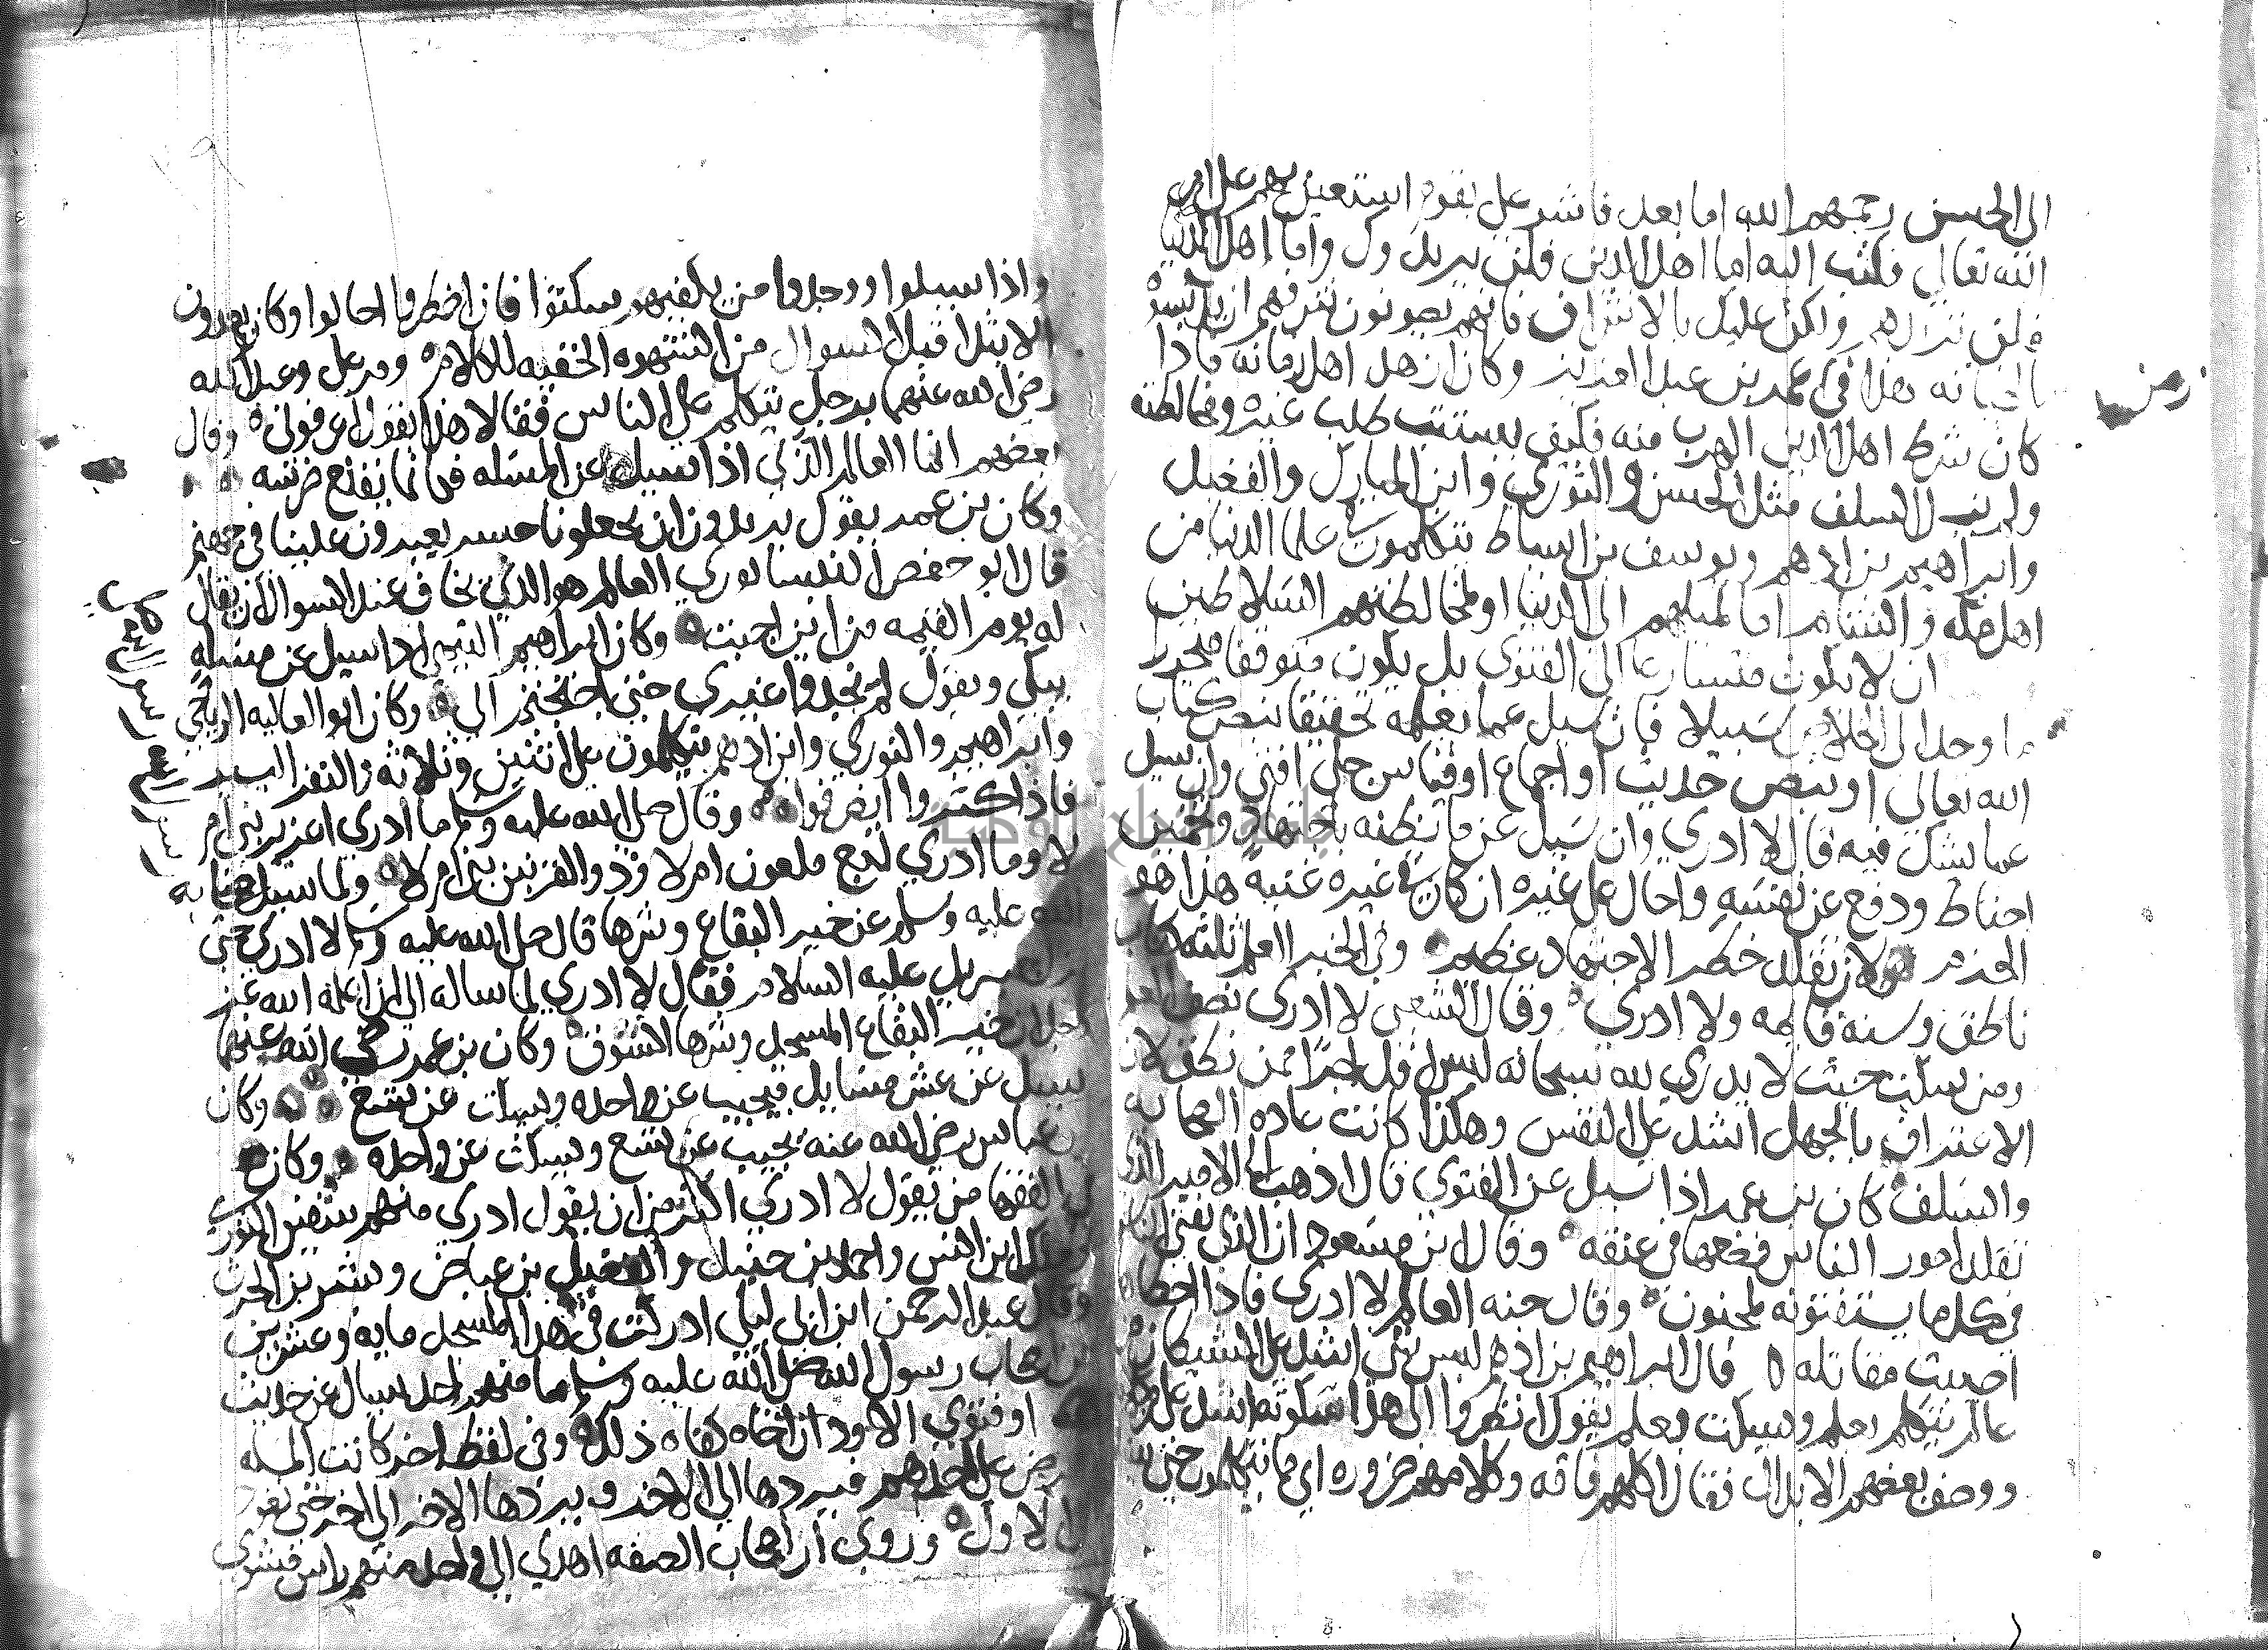 الى الحسن رحمهم الله اما بعد فاشر على بقوم استعين بهم على امر
الله تعالى فكتب اليه اما اهل الدين فلن يريدوك واما اهل الدنيا
فلن تريدهم ولكن عليك بالاشراف فانهم يصونون شرفهم ان يدنسوه
بالخيانه هذا في عمر بن عبد العزيز وكان ازهد اهل زمانه فاذا
كان شرط اهل الدين الهرب منه فكيف يستتب طلب غيره ومخالطته
ولم يزل السلف مثل الحسن والثوري وابن المبارك والفضيل
وابراهيم بن ادهم ويوسف بن اسباط يتكلمون في علما الدنيا من
اهل مكه والشام اما لميلهم الى الدنيا او لمخالطتهم السلاطين
ان لا يكون متسارعا الى الفتوى بل يكون متوقفا متحرزا
ما وجد الى الخلاص سبيلا فان سيل عما يعلمه تحقيقا بنص كتاب
الله تعالى او بنص حديث او اجماع او قياس جلي افتى وان سيل
عما يشك فيه قال لا ادري وان سيل عن ما يظنه باجتهاد وتخمين
احتاط ودفع عن نفسه واحال على غيره ان كان في غيره غنيه هذا هو
الحزم لان تقلد خطر الاجتهاد عظيم وفي الخبر العلم ثلثه كتاب
ناطق وسنه قايمه ولا ادري وقال الشعبي لا ادري نصف العلم
ومن سكت حيث لا يدري لله سبحانه ليس باقل اجرا ممن نطق لان
الاعتراف بالجهل اشد على النفس وهكذا كانت عاده الصحابه
والسلف كان بن عمر اذا سيل عن الفتوى قال اذهب الى الامير الذي
تقلد امور الناس فضعها في عنقه وقال ابن مسعود ان الذي يفتي الناس
في كل ما يستفتونه لمجنون وقال جنه العالم لا ادري فاذا اخطا
اصيبت مقاتله قال ابراهيم بن ادهم ليس شي اشد على الشيطان من
عالم يتكلم بعلم ويسكت بعلم يقول انظروا الى هذا سكوته اشد علي من
ووصف بعضهم الابدال فقال اكلهم فاقه وكلامهم ضروره اي ما يتكلمون حتى
واذا سيلوا ووجدوا من يكفيهم سكتوا فان اضطروا اجابوا وكانوا يعدون
الابتدا قبل السوال من الشهوه الخفيه للكلام ومر علي وعبد الله
رضي الله عنهما برجل يتكلم على الناس فقالا هذا يقول اعرفوني وقال
بعضهم انما العالم الذي اذا سيل عن المسله فكانما يقلع ضرسه
وكان بن عمر يقول يريدون ان يجعلونا جسر يعبرون علينا في جهنم
قال ابو حفص النيسابوري العالم هو الذي يخاف عند السوال ان يقال
له يوم القيمه من اين اجبت وكان ابراهيم التيمي اذا سيل عن مسله
يبكي ويقول لم تجدوا غيري حتى احتجتم الي وكان ابو العاليه الرياحي
وابراهيم والثوري وابن ادهم يتكلمون على اثنين وثلاثه والنفر اليسير
فاذا كثروا انصرفوا وقال صلى الله عليه وسلم ما ادري اعزير نبي ام
لا وما ادري تبع ملعون ام لا وذو القرنين نبي ام لا ولما سيل صلى
الله عليه وسلم عن خير البقاع وشرها قال صلى الله عليه وسلم لا ادري حتى
نزل جبريل عليه السلام فقال لا ادري لما ساله الى ان اعلمه الله عز
وجل ان خير البقاع المسجد وشرها السوق وكان بن عمر رضي الله عنهما
يسيل عن عشر مسايل فيجيب عن واحده ويسكت عن تسع وكان
بن عباس رضي الله عنه يجيب عن تسع ويسكت عن واحده وكان
في الفقها من يقول لا ادري اكثر من ان يقول ادري منهم سفين الثوري
ومالك ابن انس واحمد بن حنبل والفضيل بن عياض وبشر بن الحرث
وقال عبد الرحمن ابن ابي ليلى ادركت في هذا المسجد مايه وعشرين
من اصحاب رسول الله صلى الله عليه وسلم ما منهم احد يسال عن حديث
او فتوي الا ود ان اخاه كفاه ذلك وفي لفظ اخر كانت المسله
تعرض على احدهم فيردها الى الاخر ويردها الاخر الى اخر حتى تعود
الى الاول وروي ان اصحاب الصفه اهدي الى واحد منهم راس مشوي